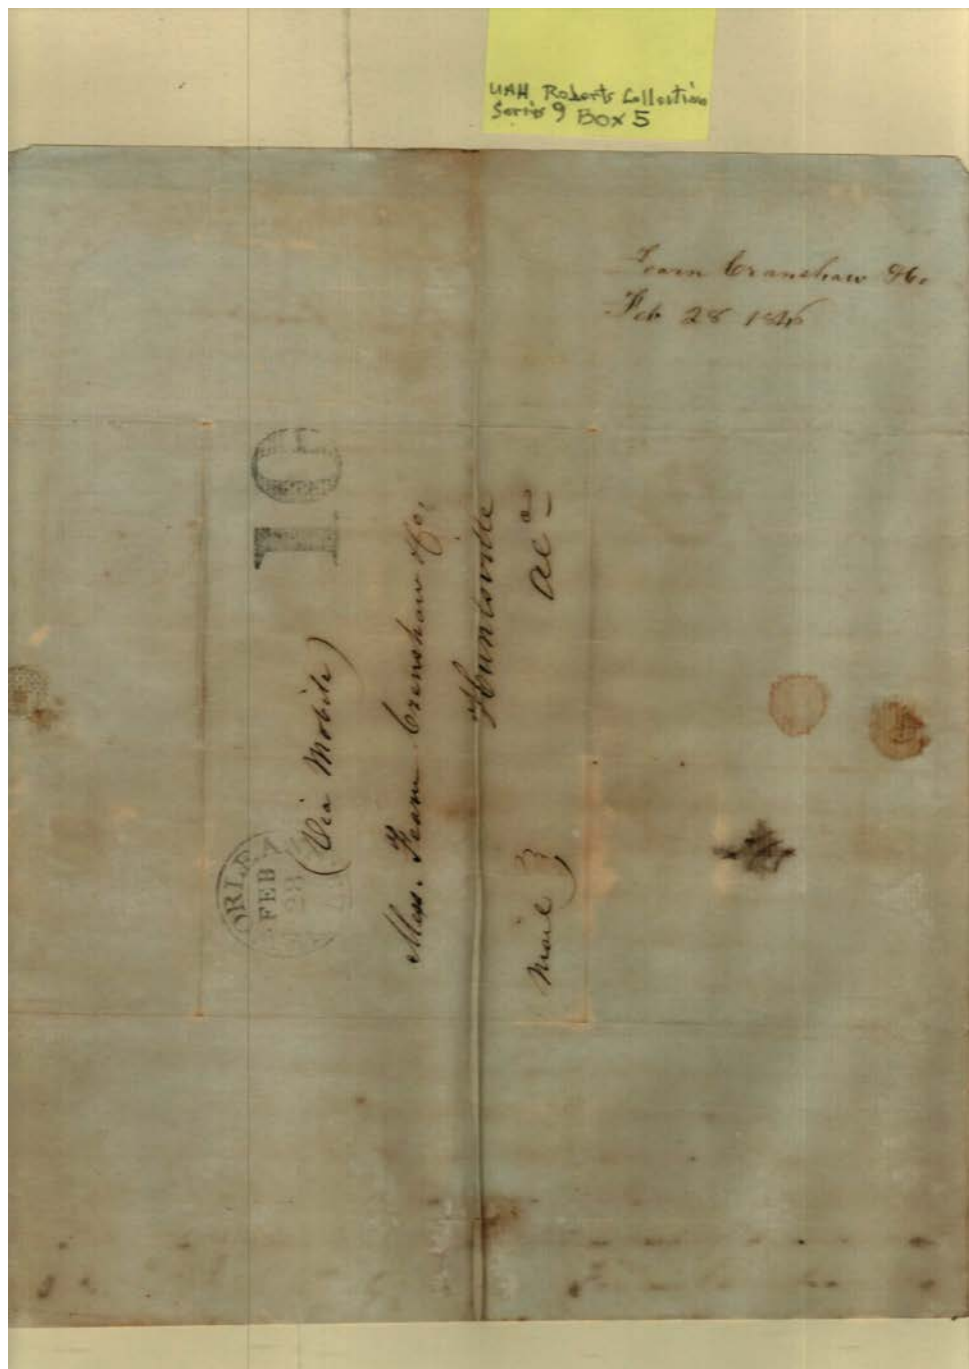 UAH Roberts Collection
Series 9 Box 5
Fearn Cranshaw &Co
Feb 28 1846
10
ORLEA
FEB
28
(Via Mobile)
Mess. Fearn Crenshaw &Co,
Huntsville
Ala
Mail }